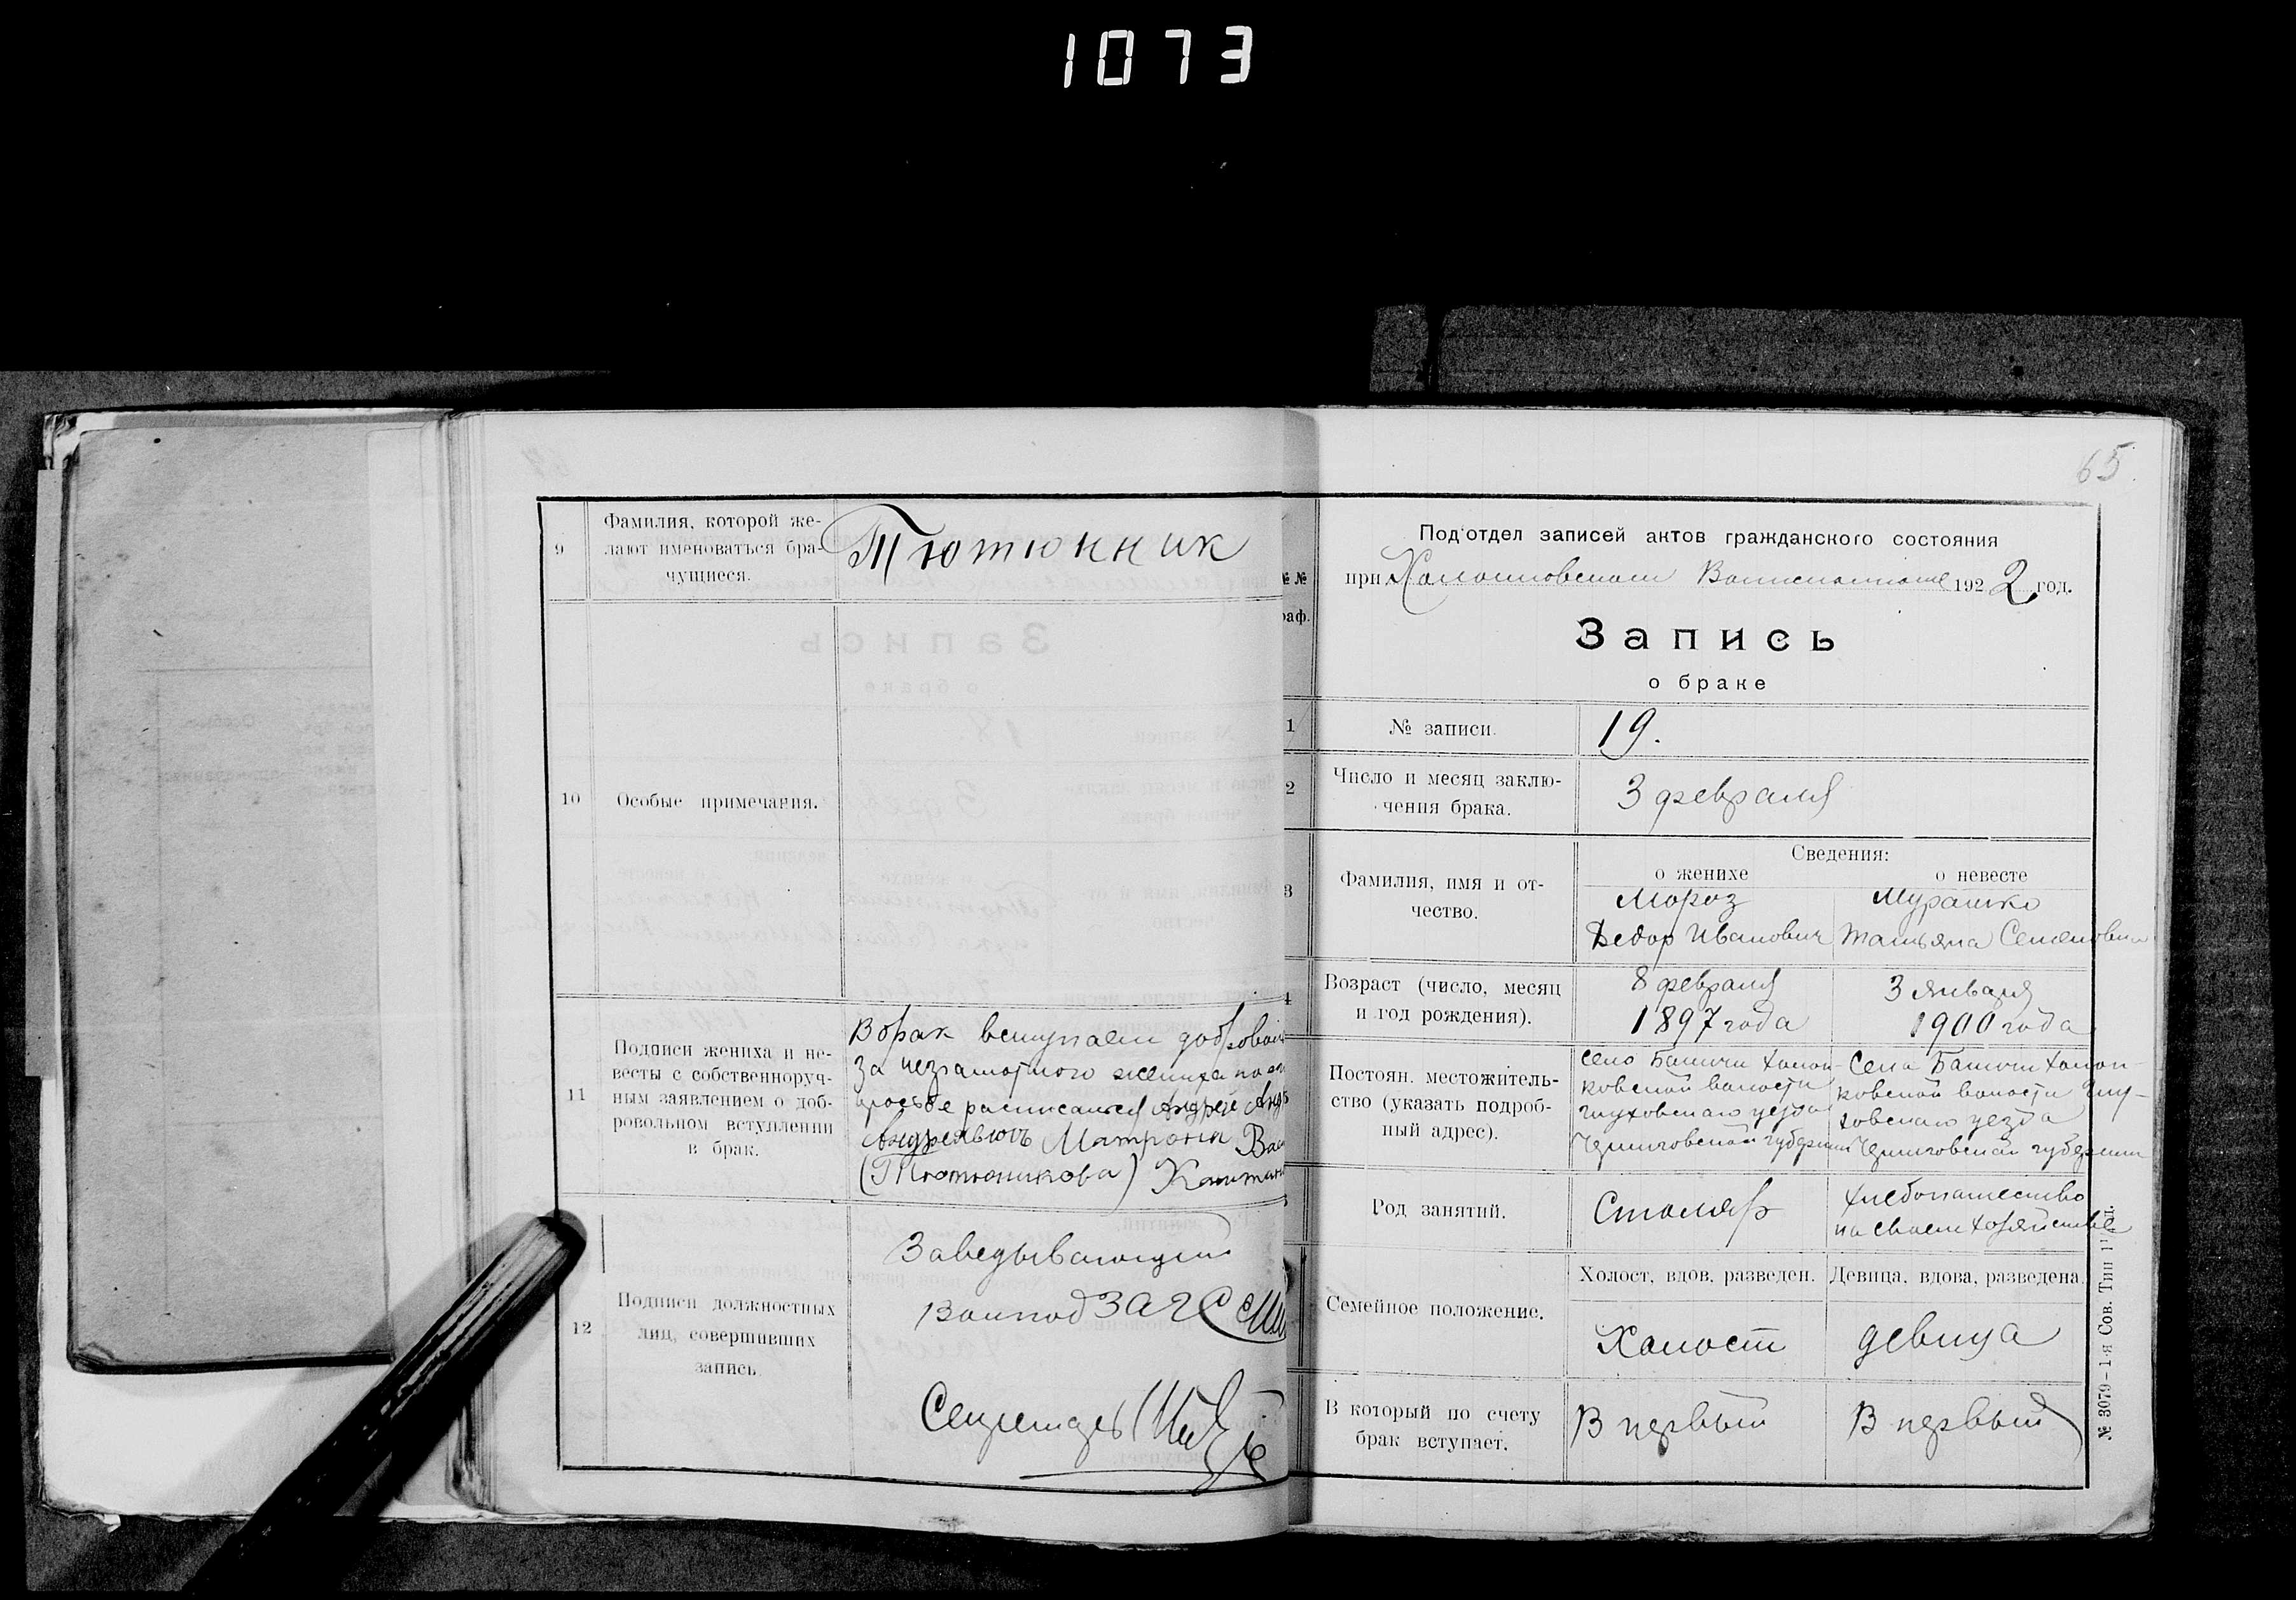 1073
9
Фамилия, которой же-
лают именоваться бра-
чущиеся.
Тютюнник
10
Особые примечания.
11
Подписи жениха и не-
весты с собственноруч-
ным заявлением о доб-
ровольном вступлении
в брак.
В брак вступаем
За неграмотного жениха по
просьбе расписался Андрей
Матрона
(Тютюникова)
12
Подписи должностных
лиц, совершивших
запись
Заведывающий
Волпод ЗАГС
Секретарь
65
Под'отдел записей актов гражданского состояния
при 1922 год.
№№
раф.
Запись
о браке
1
№ записи.
19.
2
Число и месяц заклю-
чения брака.
3 февраля
3
Фамилия, имя и от-
чество.
Сведения:
о женихе
о невесте
Мороз
Федор Иванович
Мурашко
Татьяна Семеновна
4
Возраст (число, месяц
и год рождения).
8 февраля
1897 года
3 января
1900 года
Постоян. местожитель-
ство (указать подроб-
ный адрес).
село Баничи
ковской волости
глуховского уезда
Черниговской губернии
Села Баничи
ковской волости Глу-
ховского уезда
Черниговской губернии
Род занятий.
Столяр
хлебопашество
на своем хозяйстве
Семейное положение.
Холост, вдов, разведен.
Девица, вдова, разведена.
Холост
девица
В который по счету
брак вступает.
В первый
В первый
№ 3079–1-я Сов. Тип